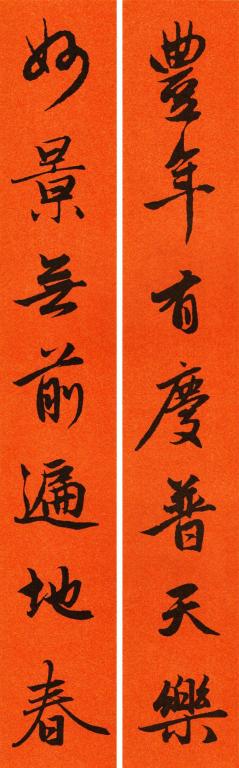 豐年有慶普天樂
好景無前遍地春